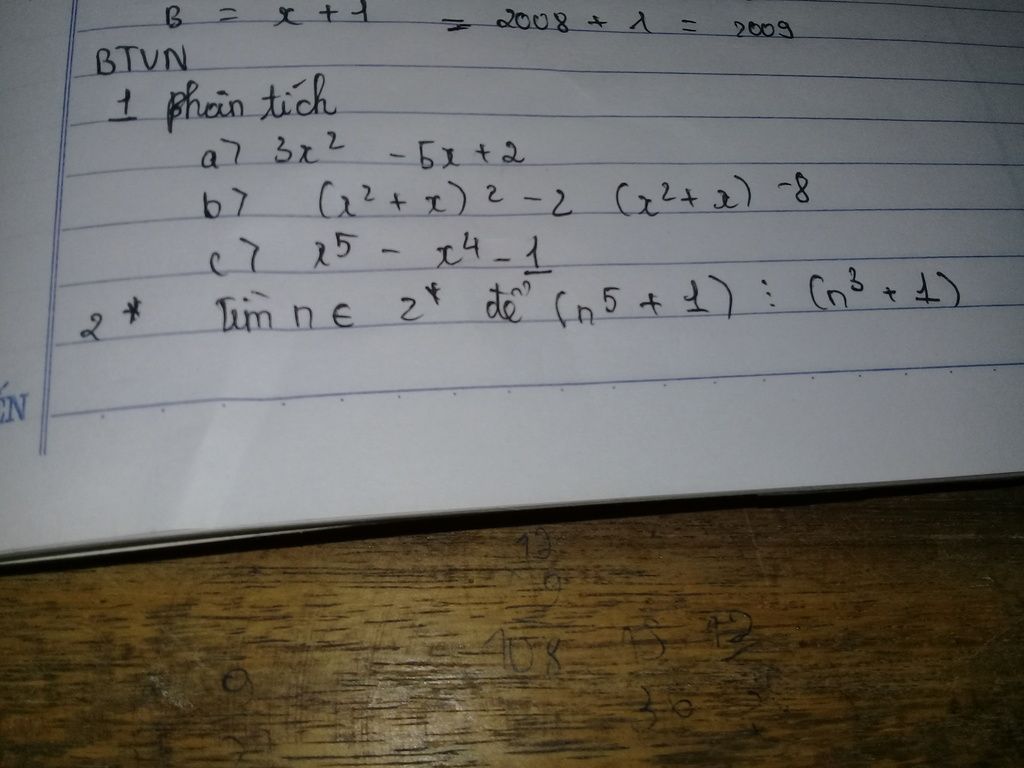 B = x + 1 = 2008 + 1 = 2009
BTVN
1 phân tích
a> 3x² - 5x + 2
b> (x² + x)² - 2 (x² + x) - 8
c> x⁵ - x⁴ - 1
2* Tìm n ∈ Z* để (n⁵ + 1) ⋮ (n³ + 1)
ÊN
12
9
108 15 12
9 36